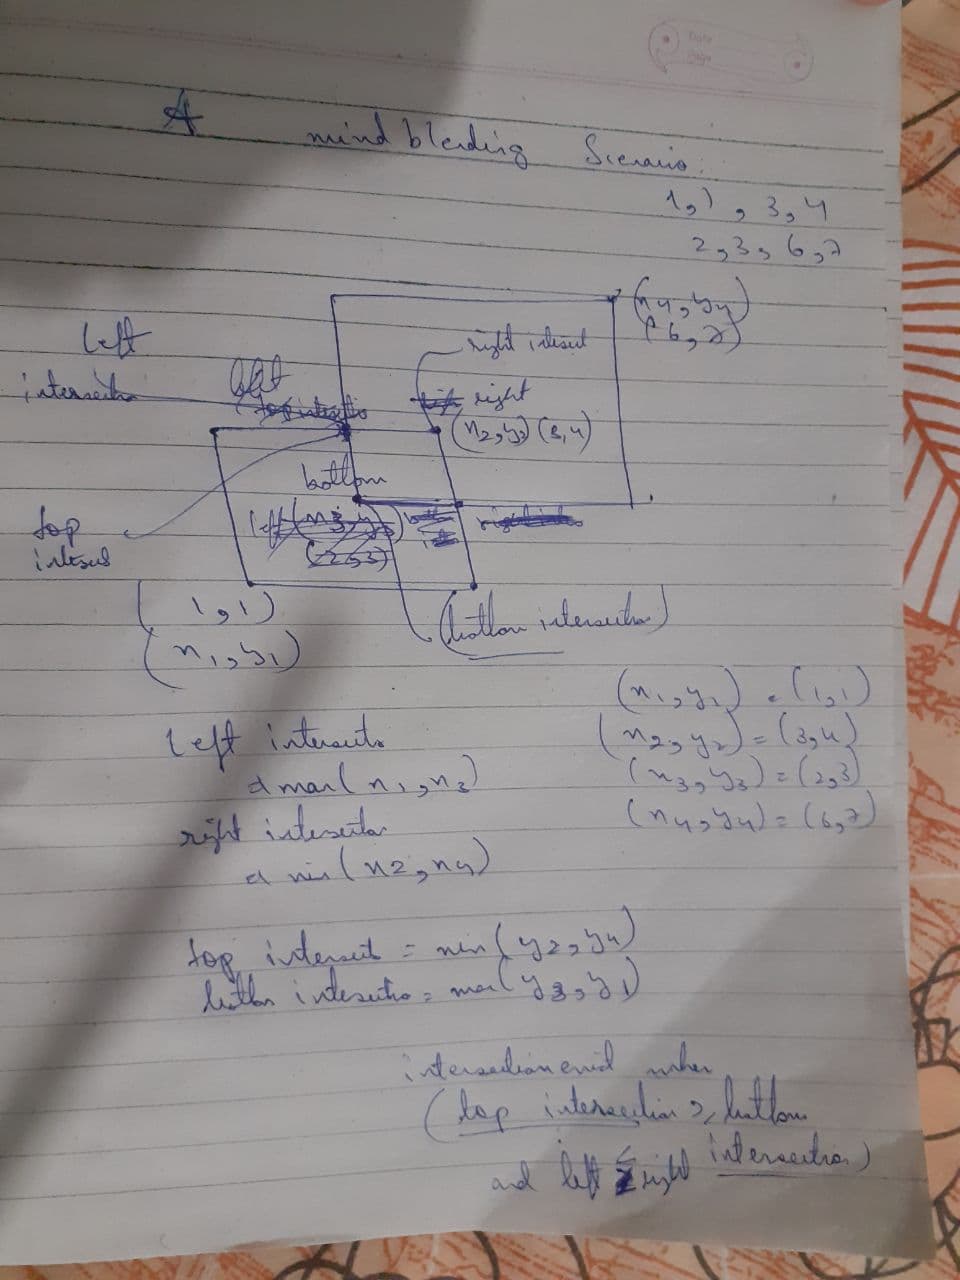 Date
Page
A mind blending Scenario.
1,1, 3,4
2,3, 6,7
(x4, y4)
(6,7)
left
intersection
right intersect
left
right
(x2, y2) (3,4)
bottom
left (x3, y3)
(2,3)
top
intersect
(1,1)
(x1, y1)
(bottom intersection)
(x1, y1) = (1,1)
(x2, y2) = (3,4)
(x3, y3) = (2,3)
(x4, y4) = (6,7)
left intersects
max(x1, x3)
right intersection
min(x2, x4)
top intersect = min(y2, y4)
bottom intersection = max(y3, y1)
intersection exist when
(top intersection > bottom
intersection)
and left < right